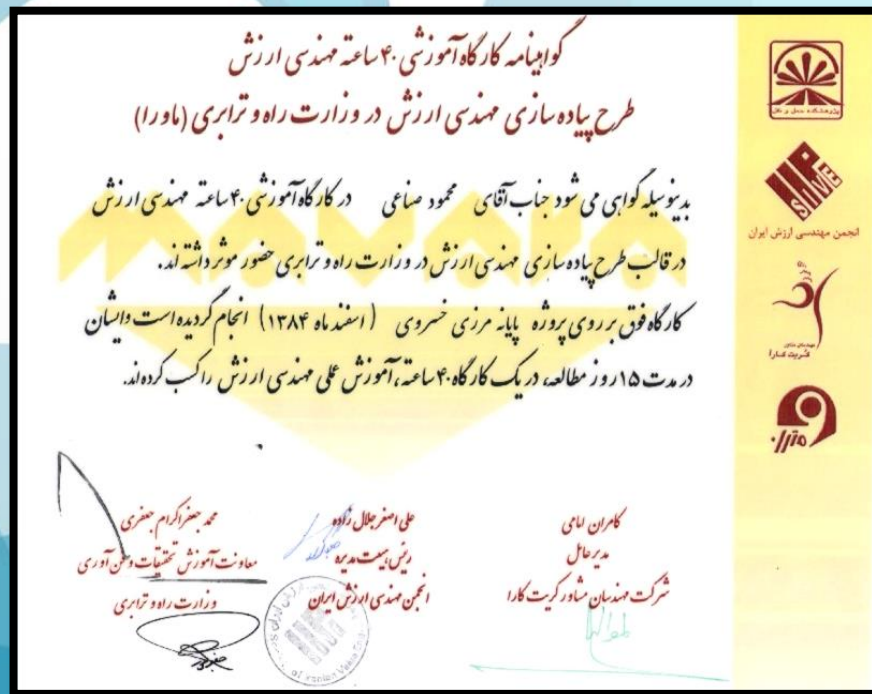 گواهینامه کارگاه آموزشی ۴۰ ساعته مهندسی ارزش
طرح پیاده سازی مهندسی ارزش در وزارت راه و ترابری (ماورا)
بدینوسیله گواهی می شود جناب آقای محمود صناعی در کارگاه آموزشی ۴۰ ساعته مهندسی ارزش
در قالب طرح پیاده سازی مهندسی ارزش در وزارت راه و ترابری حضور موثر داشته اند.
کارگاه فوق بر روی پروژه پایانه مرزی خسروی (اسفند ماه ۱۳۸۴) انجام گردیده است و ایشان
در مدت ۱۵ روز مطالعه، در یک کارگاه ۴۰ ساعته، آموزش عملی مهندسی ارزش را کسب کرده اند.
mavara
کامران امامی
مدیر عامل
شرکت مهندسان مشاور کریت کارا
علی اصغر جلال زاده
رئیس هیئت مدیره
انجمن مهندسی ارزش ایران
محمد جعفر اکرام جعفری
معاونت آموزش تحقیقات و فن آوری
وزارت راه و ترابری
پژوهشکده حمل و نقل
SIVE
انجمن مهندسی ارزش ایران
مهندسان مشاور
کریت کارا
مترا